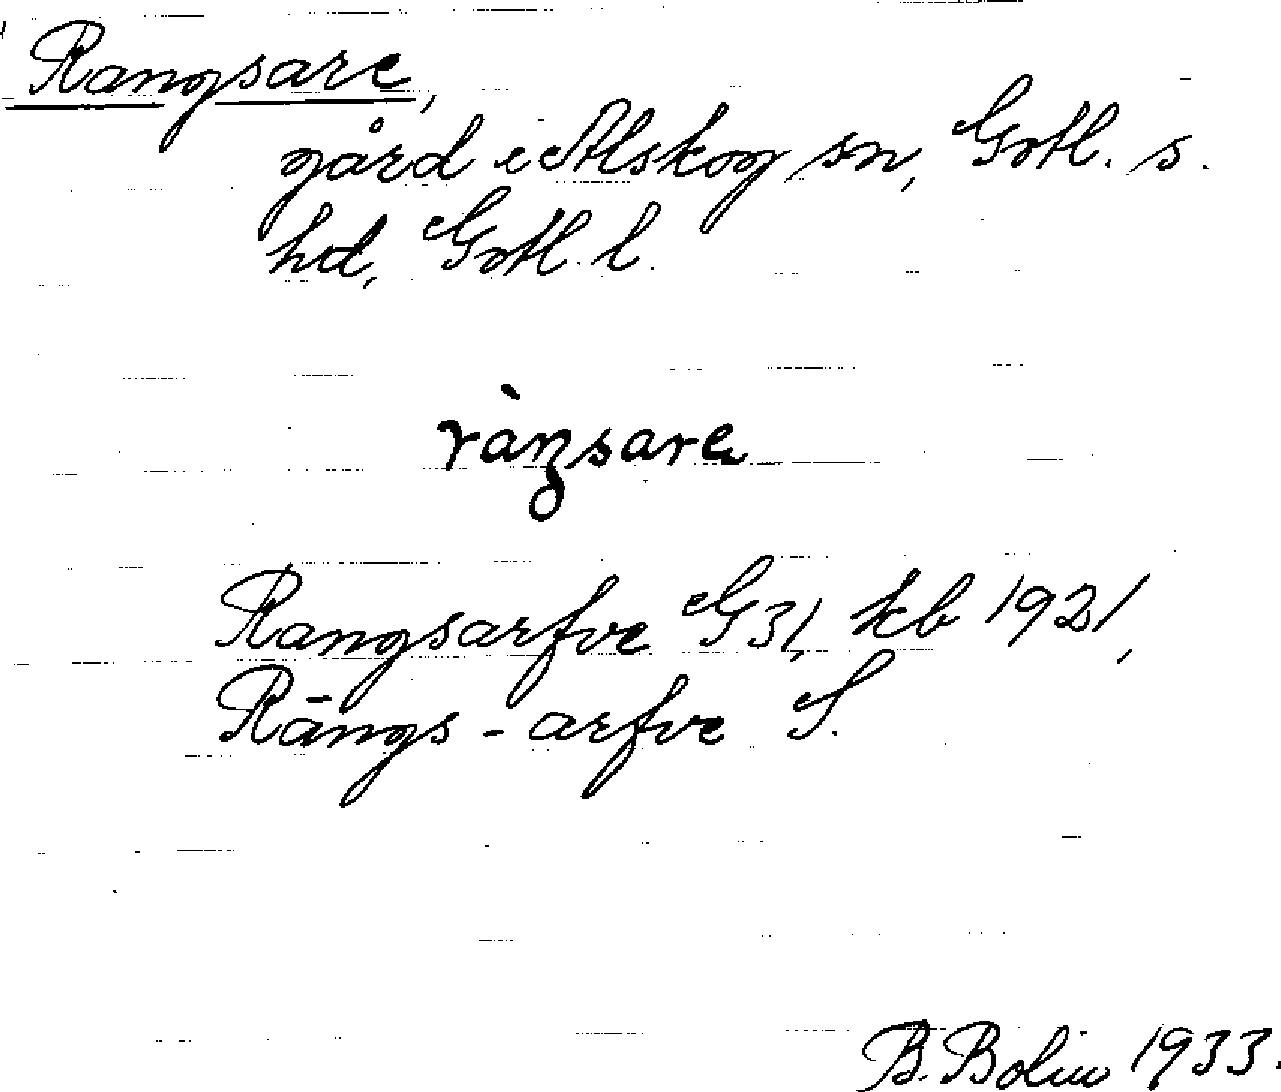 Rangsare,
gård i Alskog sn, Gotl. s.
hd, Gotl. l.
ràŋsare
Rangsarfve G31, kb 1921,
Rāngs-arfve S.
B. Bolin 1933.